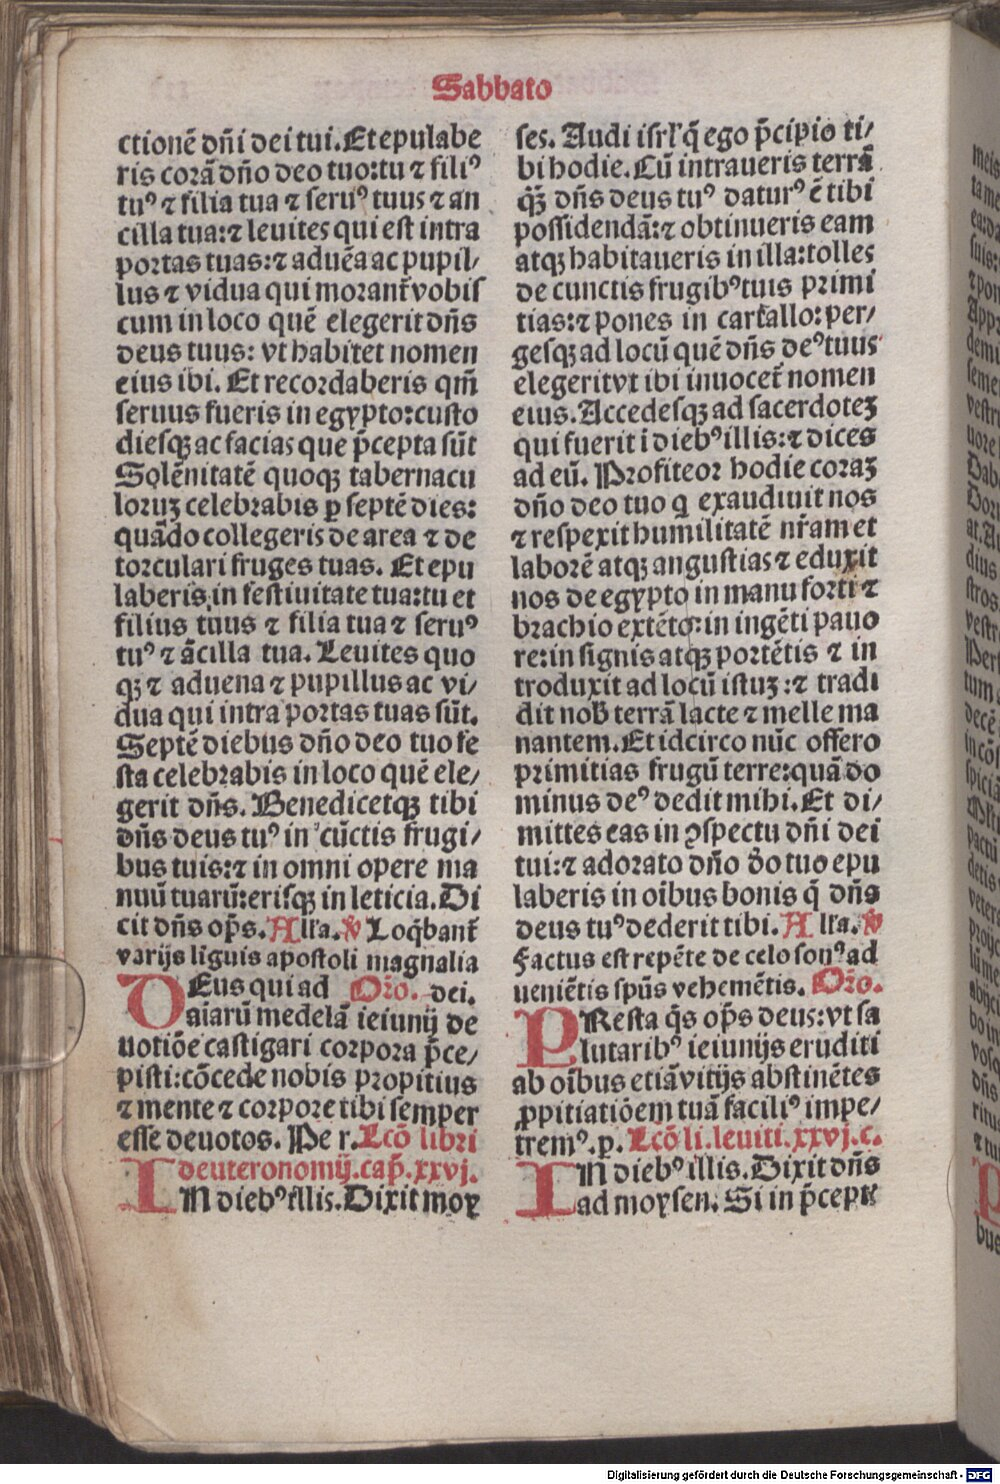 Sabbato
ctionē dn̄i dei tui. Et epulabe
ris corā dn̄o deo tuo: tu ⁊ filiꝰ
tuꝰ ⁊ filia tua ⁊ seruꝰ tuus ⁊ an
cilla tua: ⁊ leuites qui est intra
portas tuas: ⁊ aduēa ac pupil/
lus ⁊ vidua qui morant̄ vobis
cum in loco quē elegerit dn̄s
deus tuus: vt habitet nomen
eius ibi. Et recordaberis qm̄
seruus fueris in egypto: custo
diesqꝫ ac facias que p̄cepta sūt
Solēnitatē quoqꝫ tabernacu
loruꝫ celebrabis ꝑ septē dies:
quādo collegeris de area ⁊ de
torculari fruges tuas. Et epu
laberis in festiuitate tua: tu et
filius tuus ⁊ filia tua ⁊ seruꝰ
tuꝰ ⁊ ācilla tua. Leuites quo
qꝫ ⁊ aduena ⁊ pupillus ac vi/
dua qui intra portas tuas sūt.
Septē diebus dn̄o deo tuo fe
sta celebrabis in loco quē ele/
gerit dn̄s. Benedicetqꝫ tibi
dn̄s deus tuꝰ in cūctis frugi/
bus tuis: ⁊ in omni opere ma
nuū tuarū: erisqꝫ in leticia. Di
cit dn̄s op̄s. All'a. ℣ Loq̄bant̄
varijs liguis apostoli magnalia
DEus qui ad Or̄o. dei.
aiarū medelā ieiunij de
uotiōe castigari corpora p̄ce/
pisti: cōcede nobis propitius
⁊ mente ⁊ corpore tibi semper
esse deuotos. Pe r. Lcō libri
deuteronomij. cap̄. xxvj.
IN diebꝰ illis. Dixit moy
ses. Audi isrl' q̄ ego p̄cipio ti/
bi hodie. Cū intraueris terrā
qꝫ̄ dn̄s deus tuꝰ daturꝰ ē tibi
possidendā: ⁊ obtinueris eam
atqꝫ habitaueris in illa: tolles
de cunctis frugibꝰ tuis primi
tias: ⁊ pones in cartallo: per/
gesqꝫ ad locū quē dn̄s deꝰ tuus
elegerit vt ibi inuocet̄ nomen
eius. Accedesqꝫ ad sacerdoteꝫ
qui fuerit ī diebꝰ illis: ⁊ dices
ad eū. Profiteor hodie coraꝫ
dn̄o deo tuo q exaudiuit nos
⁊ respexit humilitatē nr̄am et
laborē atqꝫ angustias ⁊ eduxit
nos de egypto in manu forti ⁊
brachio extēto: in ingēti pauo
re: in signis atqꝫ portētis ⁊ in
troduxit ad locū istuꝫ: ⁊ tradi
dit nob̄ terrā lacte ⁊ melle ma
nantem. Et idcirco nūc offero
primitias frugū terre: quā do
minus deꝰ dedit mihi. Et di/
mittes eas in ꝯspectu dn̄i dei
tui: ⁊ adorato dn̄o d̄o tuo epu
laberis in oībus bonis q̄ dn̄s
deus tuꝰ dederit tibi. All'a. ℣
Factus est repēte de celo sonꝰ ad
ueniētis spūs vehemētis. Or̄o.
PResta q̄s op̄s deus: vt sa
lutaribꝰ ieiunijs eruditi
ab oībus etiā vitijs abstinētes
ꝓpitiatiōem tuā faciliꝰ impe/
tremꝰ. p. Lcō li. leuiti. xxvj. c.
IN diebꝰ illis. Dixit dn̄s
ad moysen. Si in p̄cept
Digitalisierung gefördert durch die Deutsche Forschungsgemeinschaft - DFG